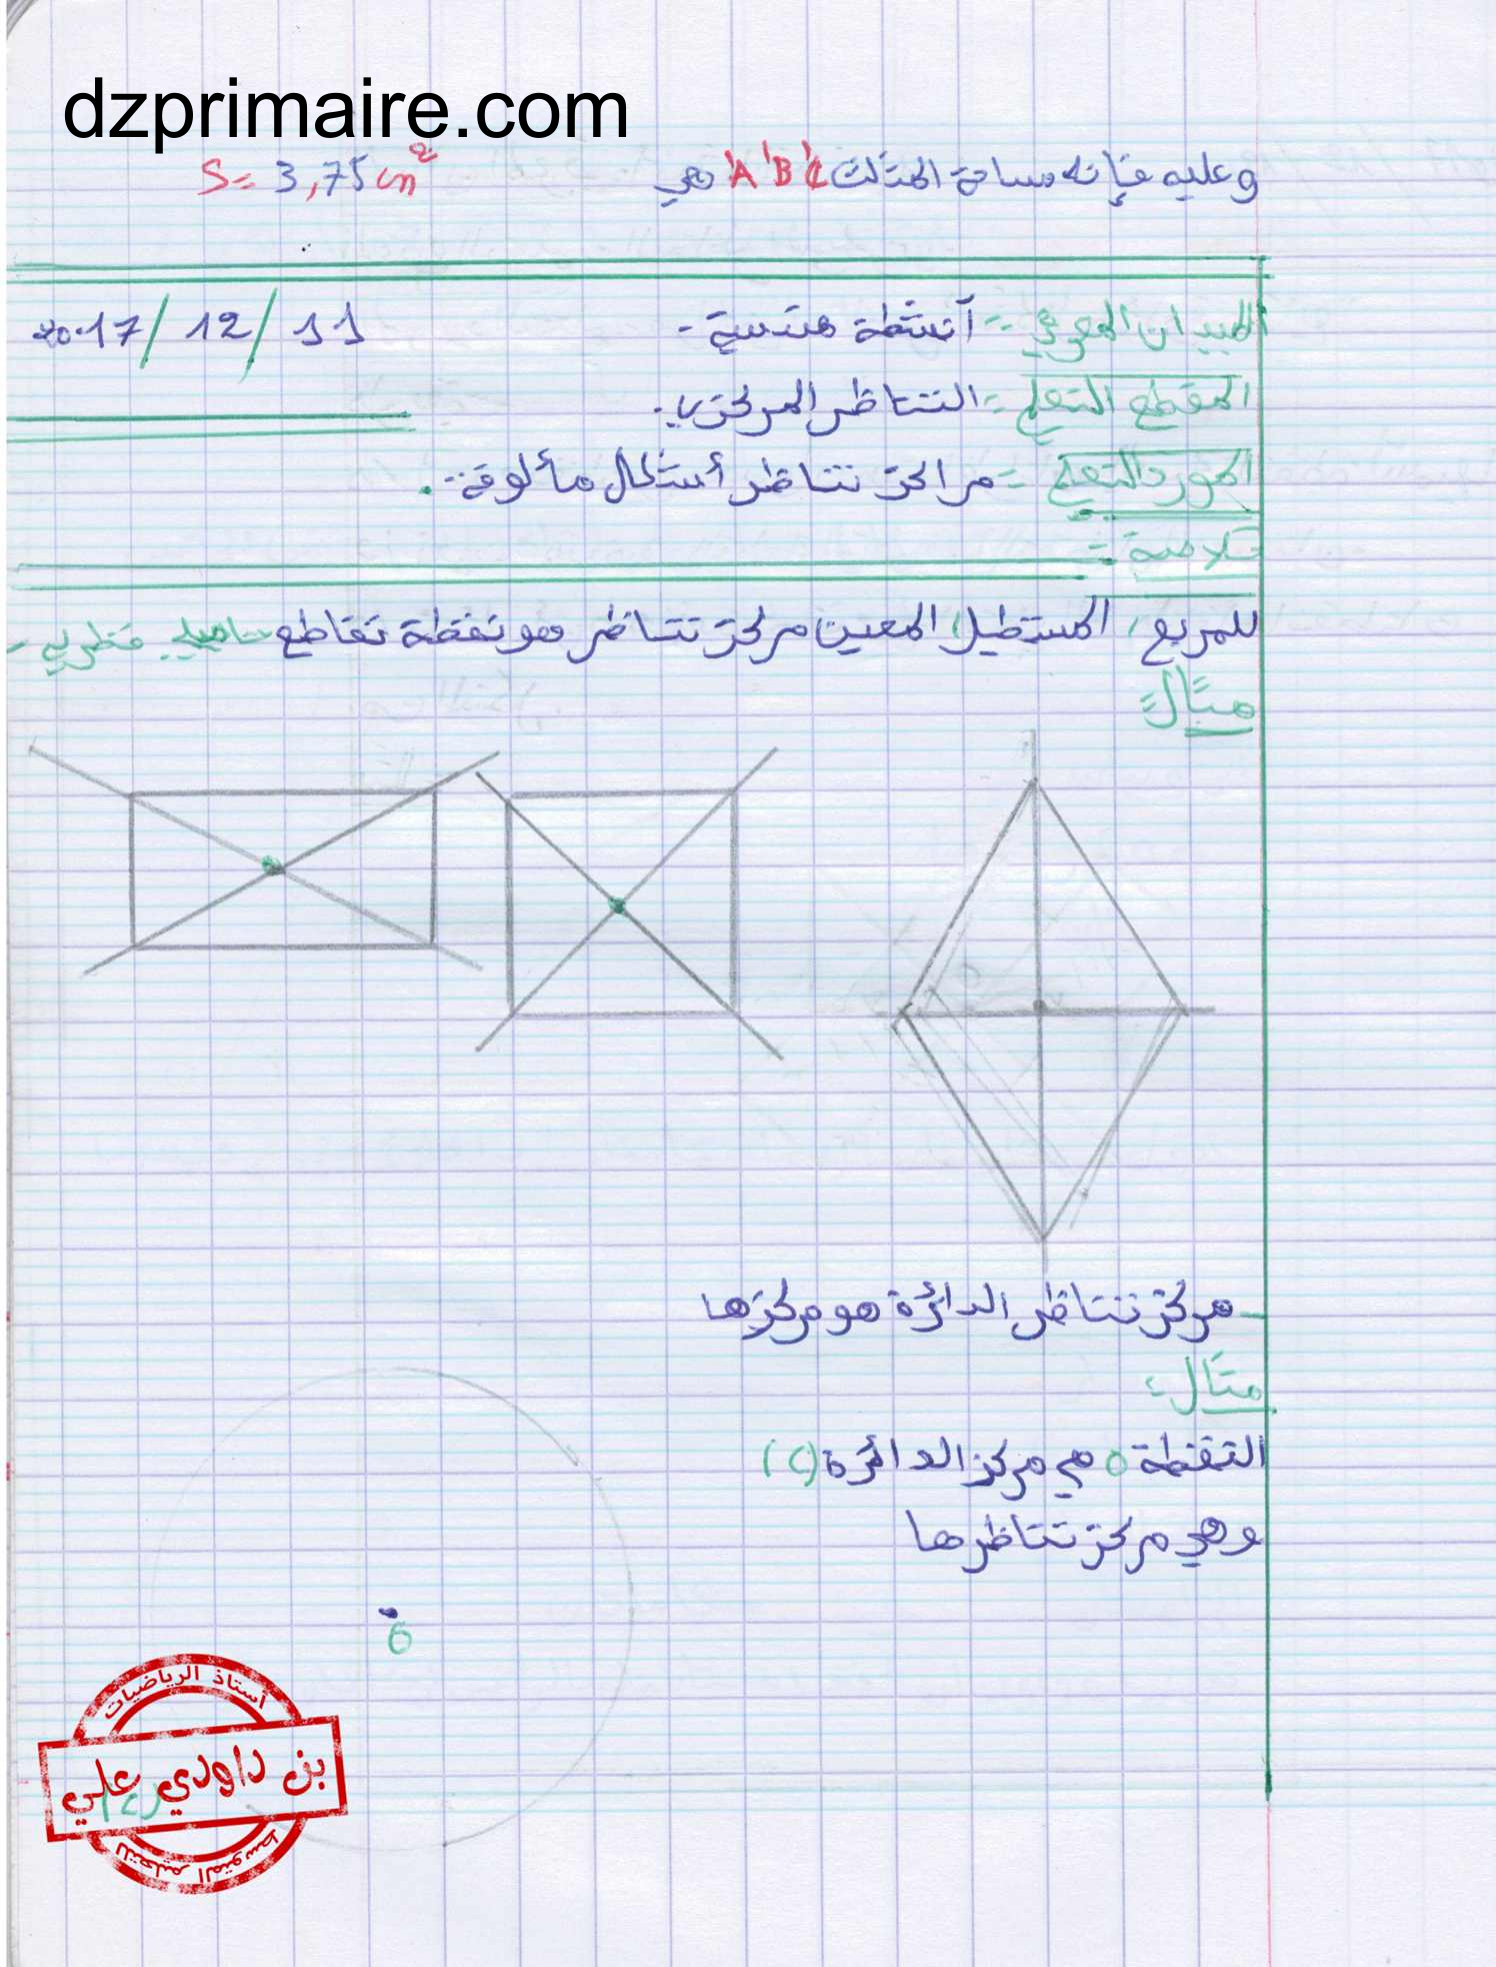 dzprimaire.com
وعليه فإنه مساحة المثلث A'B'C' هي S = 3,75 cm²
الميدان المعرفي :- أنشطة هندسية - 2017/12/11
المقطع التعلمي :- التناظر المركزي.
المورد التعلمي :- مراكز تناظر أشكال مألوفة .
خلاصة :-
للمربع، المستطيل، المعين مركز تناظر هو نقطة تقاطع قطريه -
مثال :
- مركز تناظر الدائرة هو مركزها
مثال :
النقطة O هي مركز الدائرة (C)
وهي مركز تناظرها
O
أستاذ الرياضيات
بن داودي علي
للتعليم المتوسط